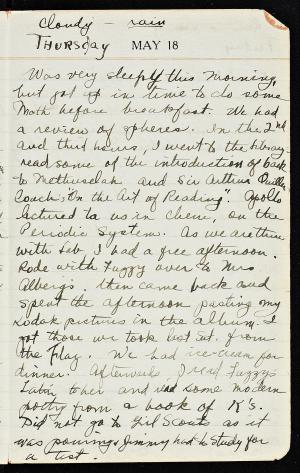 Cloudy - rain
THURSday MAY 18
Was very sleepy this morning,
but got up in time to do some
Math before breakfast. We had
a review of spheres. In the 2nd
and third hours, I went to the library
read some of the introduction of Back
to Methuselah and Sir Arthur Quiller
Couch, "On the Art of Reading". Apollo
lectured to us in Chem, on the
Periodic System. As we are thru
with Lab, I had a free afternoon.
Rode with Fuzzy over to Mrs
Alberg's. then came back and
spent the afternoon pasting my
kodak pictures in the album. I
got those we took last Sat. from
the Flag. We had ice-cream for
dinner. Afterwards I read Fuzzy's
Latin to her and read some modern
poetry from a book of K's.
Did not go to Girl Scouts as it
was pouring & Jimmy had to study for
a test.